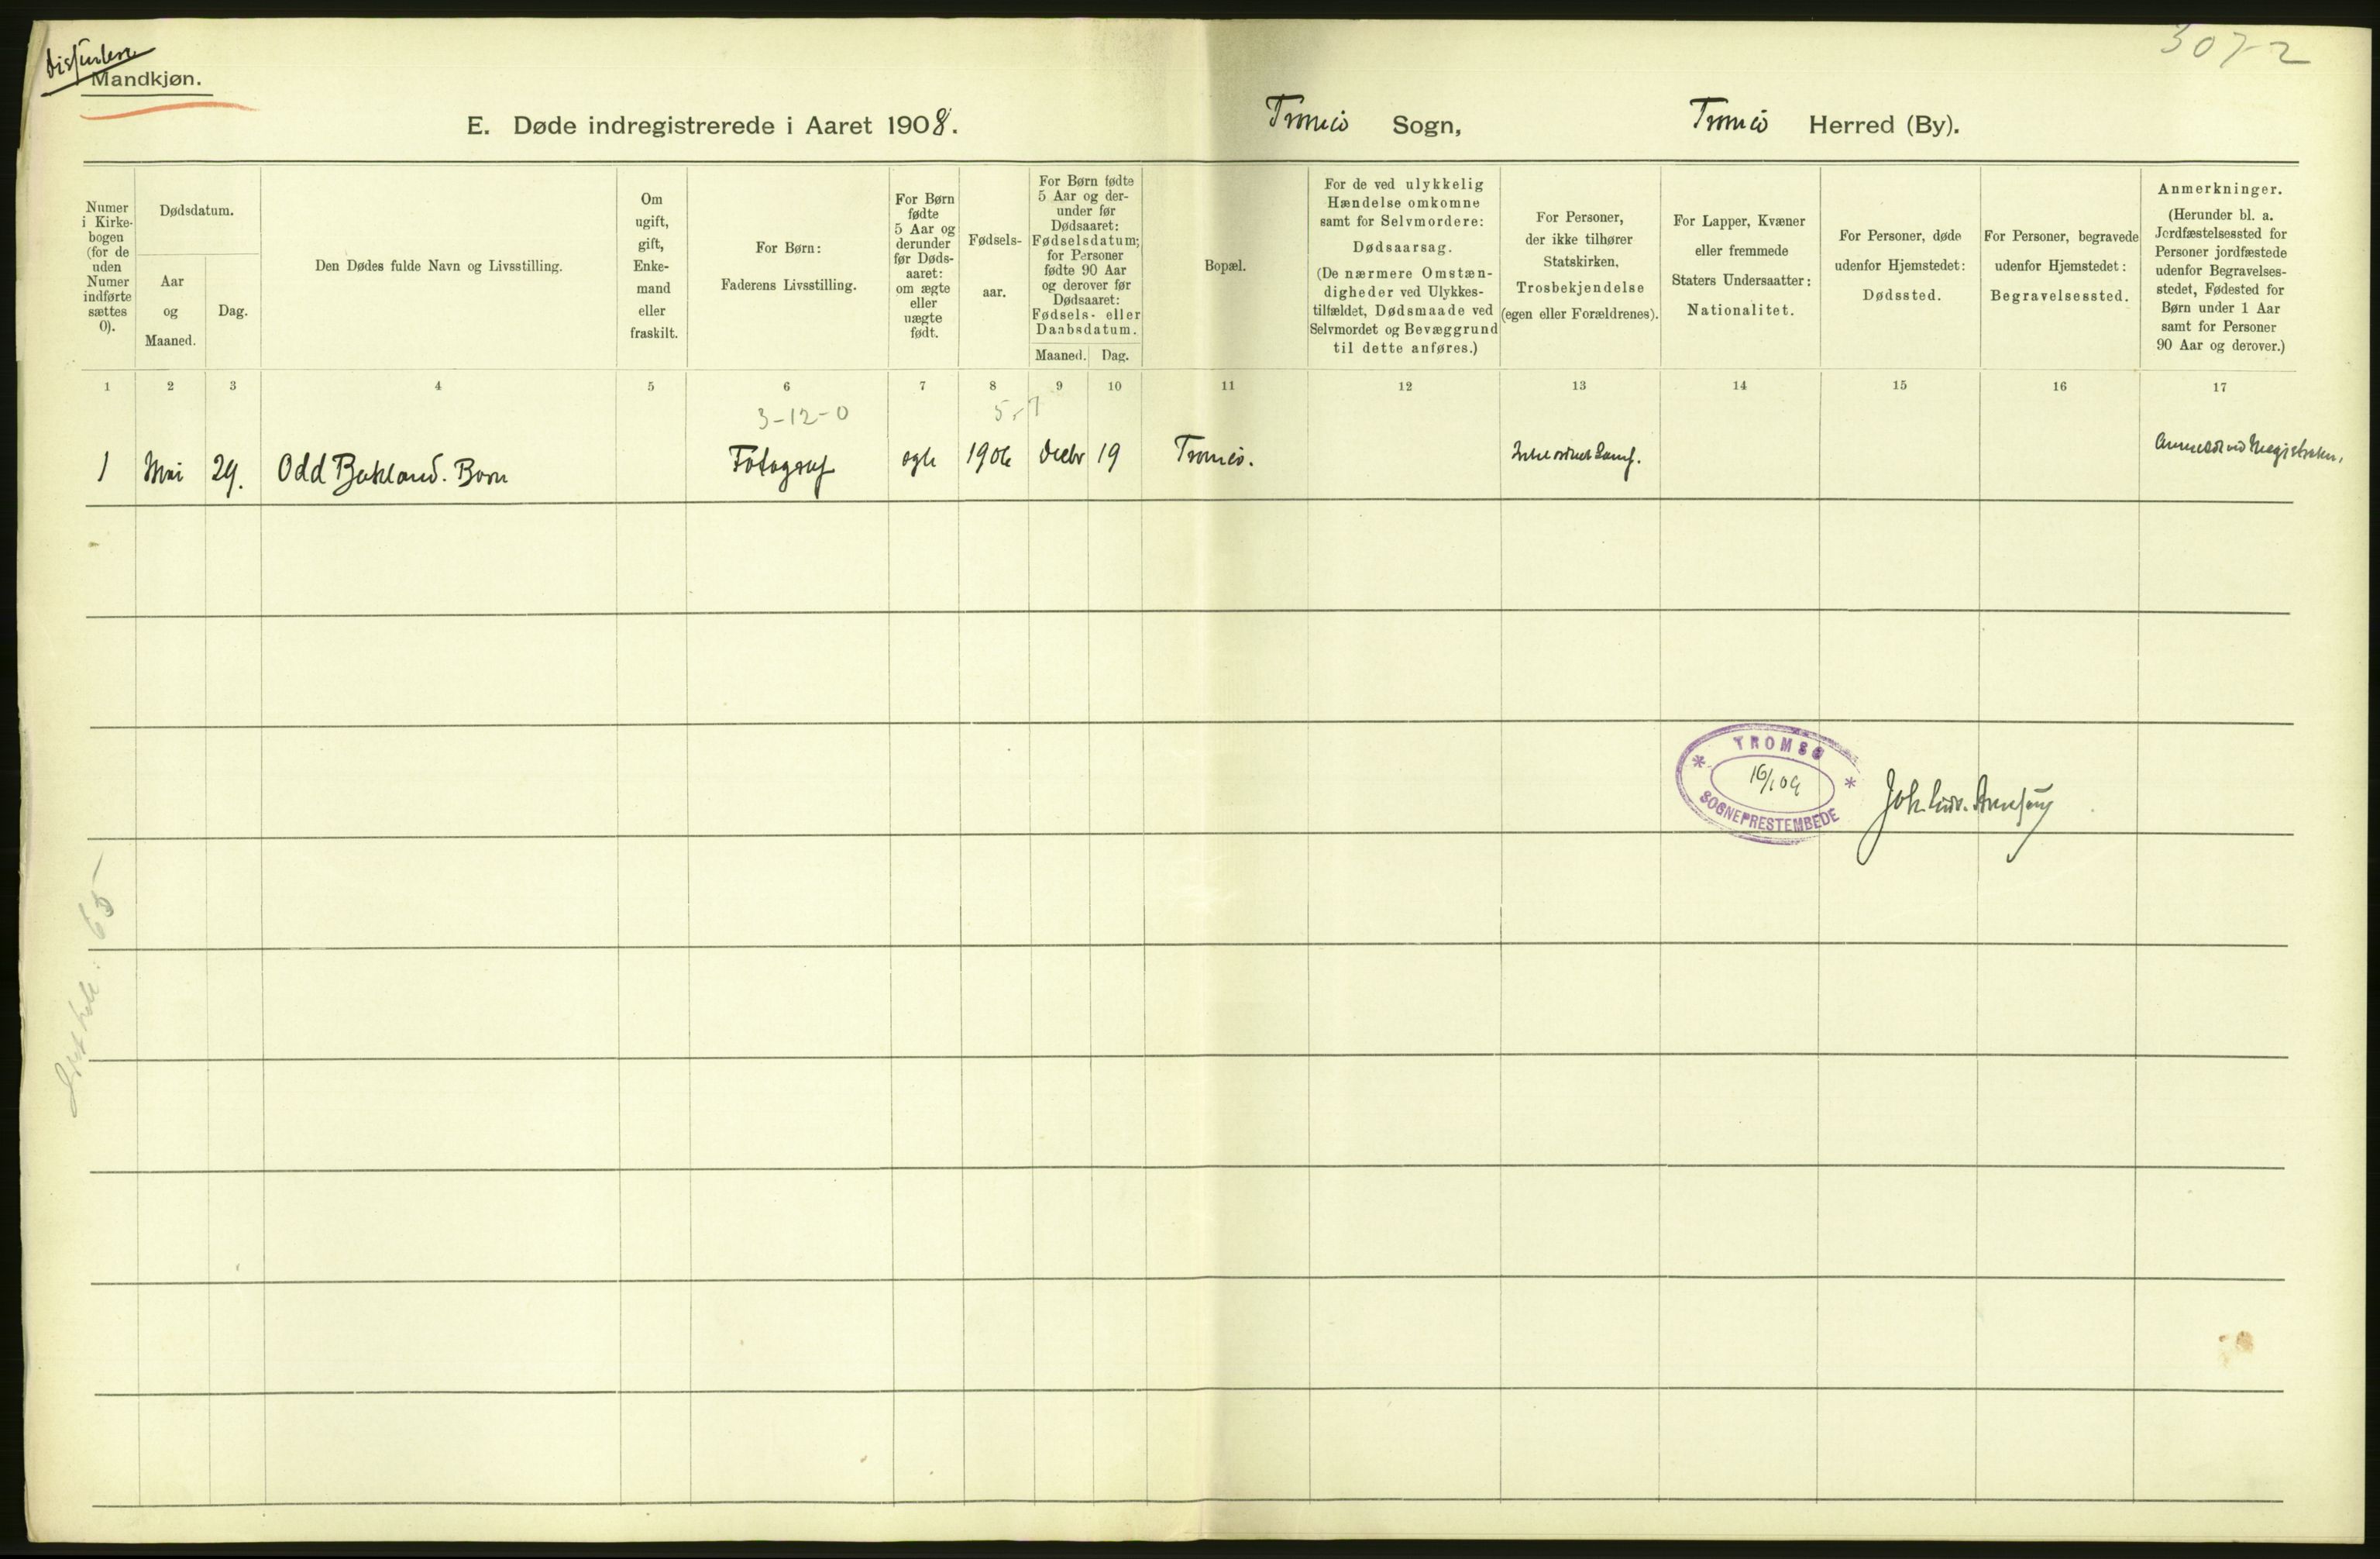 3072
Mandkjøn.
E. Døde indregistrerede i Aaret 1908. Tromsö Sogn, Tromsö Herred (By).
Numer
i Kirke-
bogen
(for de
uden
Numer
indførte
sættes
0).
Dødsdatum.
Aar
og
Maaned.
Dag.
Den Dødes fulde Navn og Livsstilling.
Om
ugift,
gift,
Enke-
mand
eller
fraskilt.
For Børn:
Faderens Livsstilling.
For Børn
fødte
5 Aar og
derunder
før Døds-
aaret:
om ægte
eller
uægte
født.
Fødsels-
aar.
For Børn fødte
5 Aar og der-
under før
Dødsaaret:
Fødselsdatum;
for Personer
fødte 90 Aar
og derover før
Dødsaaret:
Fødsels- eller
Daabsdatum.
Maaned. Dag.
Bopæl.
For de ved ulykkelig
Hændelse omkomne
samt for Selvmordere:
Dødsaarsag.
(De nærmere Omstæn-
digheder ved Ulykkes-
tilfældet, Dødsmaade ved
Selvmordet og Bevæggrund
til dette anføres.)
For Personer,
der ikke tilhører
Statskirken,
Trosbekjendelse
(egen eller Forældrenes).
For Lapper, Kvæner
eller fremmede
Staters Undersaatter:
Nationalitet.
For Personer, døde
udenfor Hjemstedet:
Dødssted.
For Personer, begravede
udenfor Hjemstedet:
Begravelsessted.
Anmerkninger.
(Herunder bl. a.
Jordfæstelsessted for
Personer jordfæstede
udenfor Begravelses-
stedet, Fødested for
Børn under 1 Aar
samt for Personer
90 Aar og derover.)
1 2 3 4 5 6 7 8 9 10 11 12 13 14 15 16 17
3-12-0 5-7
1 Mai 29. Odd Bakland. Barn Fotograf egte 1906 Decbr 19 Tromsö. Anmeldt ved Magistraten.
TROMSØ
16/1 09
SOGNEPRESTEMBEDE
65